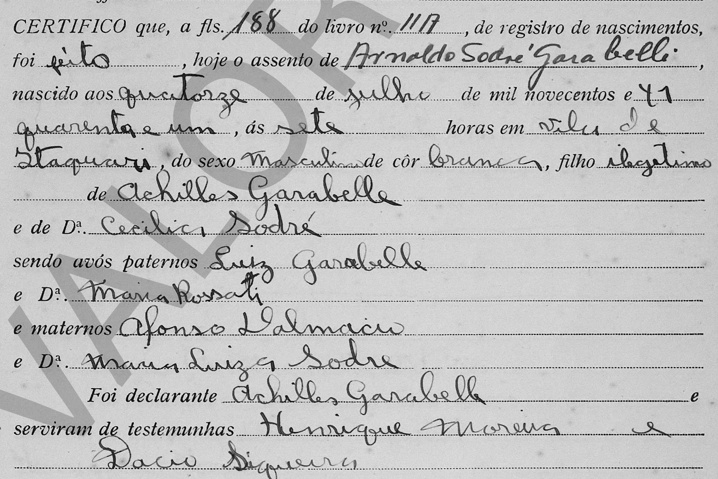 CERTIFICO que, a fls. 188 do livro nº. 11A, de registro de nascimentos,
foi feito, hoje o assento de Arnaldo Sodré Garabelli,
nascido aos quatorze de julho de mil novecentos e 41
quarenta e um, ás sete horas em vila de
Itaquari, do sexo Masculino de côr branca, filho ilegitimo
de Achilles Garabelle
e de Dª. Cecilia Sodré
sendo avós paternos Luiz Garabelle
e Dª. Maria Rossati
e maternos Afonso Dalmacio
e Dª. Maria Luiza Sodre
Foi declarante Achilles Garabelle e
serviram de testemunhas Henrique Moreira e
Dacio Siqueira
VALOR